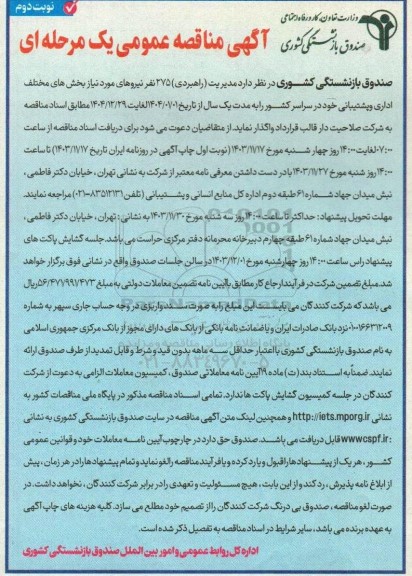 نوبت دوم
وزارت تعاون، کار و رفاه اجتماعی
صندوق بازنشستگی کشوری
آگهی مناقصه عمومی یک مرحله ای
صندوق بازنشستگی کشوری در نظر دارد مدیریت (راهبردی) ۲۷۵ نفر نیروهای مورد نیاز بخش های مختلف
اداری وپشتیبانی خود در سراسر کشور را به مدت یک سال از تاریخ ۱۴۰۴/۰۱/۰۱ لغایت ۱۴۰۴/۱۲/۲۹ مطابق اسناد مناقصه
به شرکت صلاحیت دار قالب قرارداد واگذار نماید. از متقاضیان دعوت می شود برای دریافت اسناد مناقصه از ساعت
۷:۰۰ لغایت ۱۴:۰۰ روز چهار شنبه مورخ ۱۴۰۳/۱۱/۱۷ (نوبت اول چاپ آگهی در روزنامه ایران تاریخ ۱۴۰۳/۱۱/۱۷) تا ساعت
۱۴:۰۰ روز شنبه مورخ ۱۴۰۳/۱۱/۲۷ با در دست داشتن معرفی نامه معتبر از شرکت به نشانی تهران، خیابان دکتر فاطمی،
نبش میدان جهاد شماره ۶۱ طبقه دوم اداره کل منابع انسانی و پشتیبانی (تلفن ۸۳۵۱۲۱۳۱-۰۲۱) مراجعه نمایند.
مهلت تحویل پیشنهاد: حداکثر تا ساعت ۱۴:۰۰ روز سه شنبه مورخ ۱۴۰۳/۱۱/۳۰ به نشانی: تهران، خیابان دکتر فاطمی،
نبش میدان جهاد شماره ۶۱ طبقه چهارم دبیرخانه محرمانه دفتر مرکزی حراست می باشد. جلسه گشایش پاکت های
پیشنهاد راس ساعت ۱۴:۰۰ روز چهارشنبه مورخ ۱۴۰۳/۱۲/۰۱ در سالن جلسات صندوق واقع در نشانی فوق برگزار خواهد
شد. مبلغ تضمین شرکت در فرآیند ارجاع کار مطابق با آیین نامه تضمین معاملات دولتی به مبلغ ۵۶/۴۷۷/۹۹۷/۴۷۳ ریال
می باشد که شرکت کنندگان می بایست این مبلغ را به صورت سند واریزی در وجه حساب جاری سپهر به شماره
۰۱۰۱۶۶۳۱۲۰۰۹ نزد بانک صادرات ایران و یا ضمانت نامه بانکی از بانک های دارای مجوز از بانک مرکزی جمهوری اسلامی
به نام صندوق بازنشستگی کشوری با اعتبار حداقل سه ماهه بدون قید و شرط و قابل تمدید از طرف صندوق ارائه
نمایند. ضمناً به استناد بند (ت) ماده ۱۹ آیین نامه معاملاتی صندوق، کمیسیون معاملات الزامی به دعوت از شرکت
کنندگان در جلسه کمیسیون گشایش پاکت ها ندارد. تمامی اسناد مناقصه مذکور در پایگاه ملی مناقصات کشور به
نشانی http://iets.mporg.ir و همچنین لینک متن آگهی مناقصه در سایت صندوق بازنشستگی کشوری به نشانی
www.cspf.ir قابل دریافت می باشد. صندوق حق دارد در چارچوب آیین نامه معاملات خود و قوانین عمومی
کشور، هر یک از پیشنهادها را قبول و یا رد کرده و یا فرآیند مناقصه را لغو نماید و تمام پیشنهادها را در هر زمان، پیش
از ابلاغ نامه پذیرش، رد کند و از این بابت، هیچ مسئولیت و تعهدی را در برابر شرکت کنندگان، نخواهد داشت. در
صورت لغو مناقصه، صندوق بی درنگ شرکت کنندگان را از تصمیم خود مطلع می سازد. کلیه هزینه های چاپ آگهی
به عهده برنده می باشد، سایر شرایط در اسناد مناقصه به تفصیل ذکر شده است.
اداره کل روابط عمومی و امور بین الملل صندوق بازنشستگی کشوری